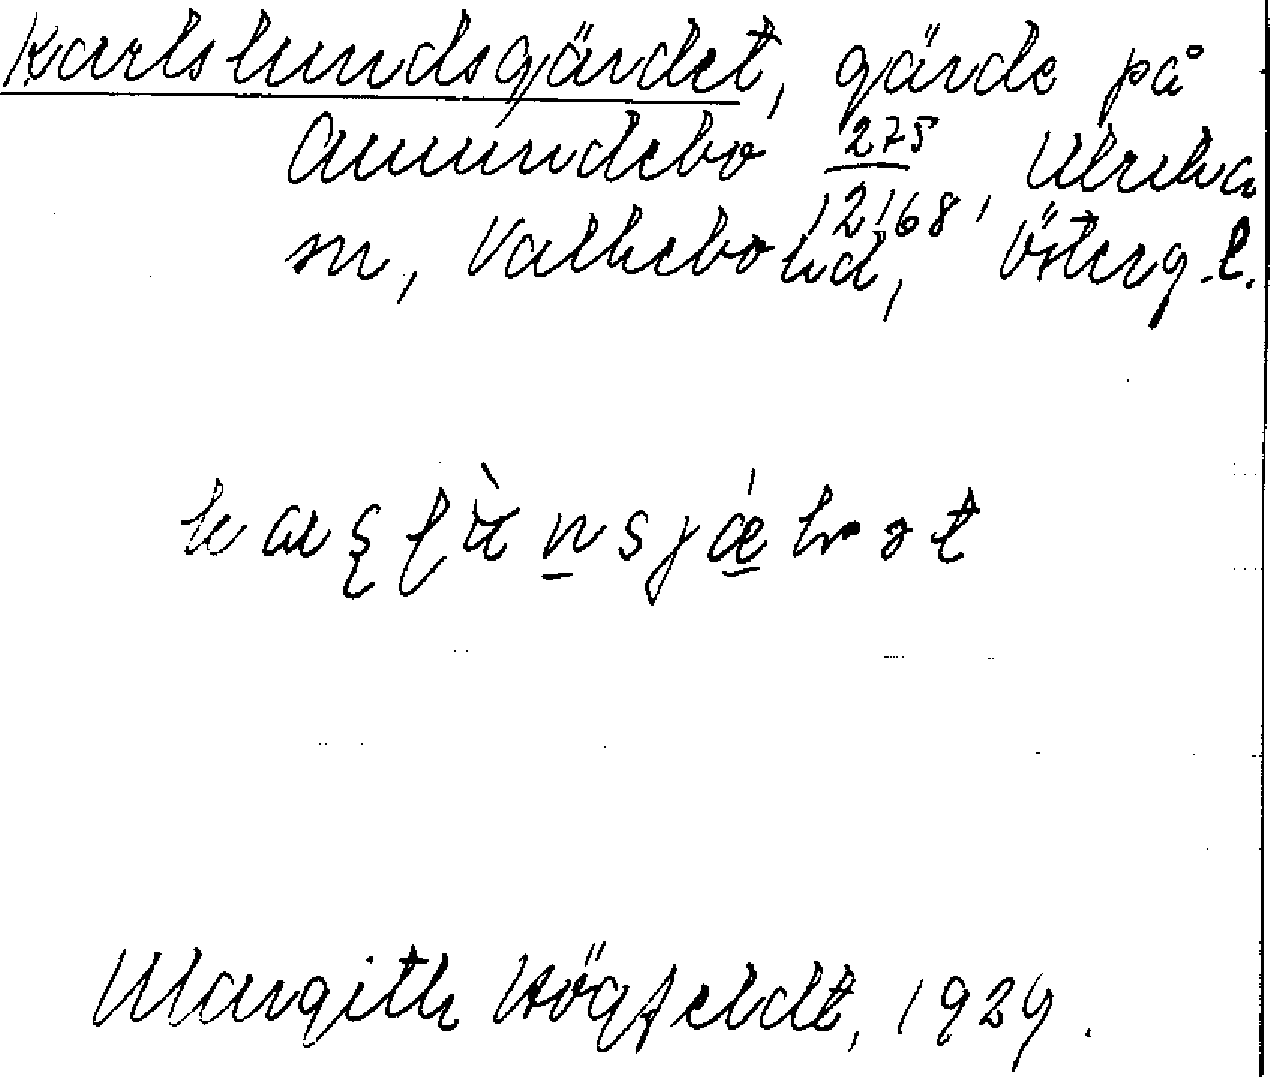 Karlslundsgärdet, gärde på
Amundebo 275/12168, Ulrika
sn, Valkebo hd, Österg. l.
Margith Högfeldt, 1929.